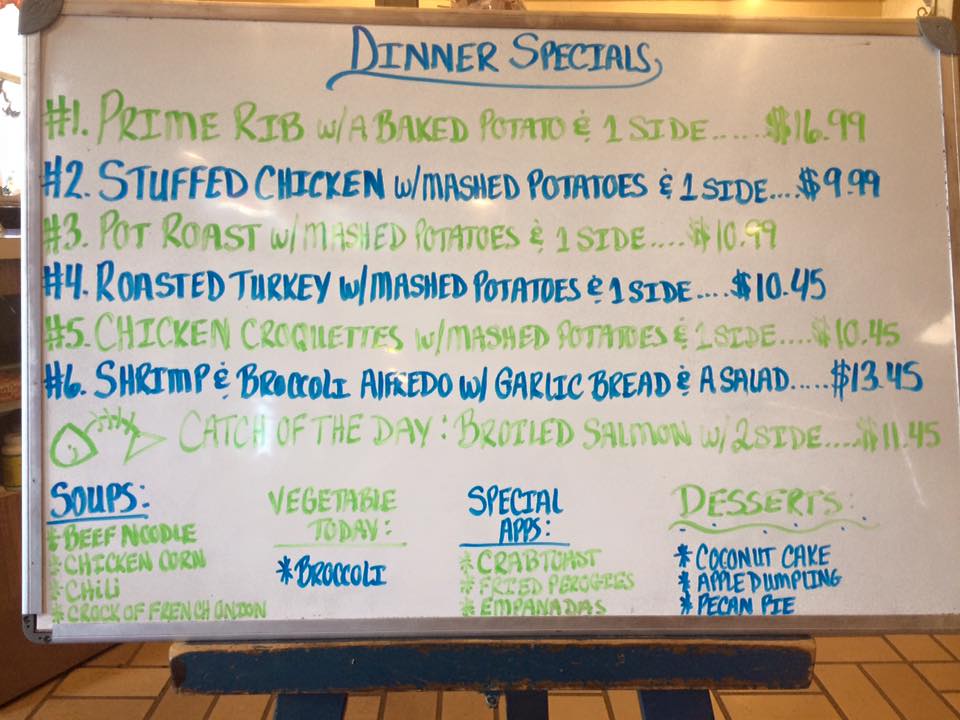 DINNER SPECIALS
#1. PRIME RIB W/A BAKED POTATO & 1 SIDE......$16.99
#2. STUFFED CHICKEN W/MASHED POTATOES & 1 SIDE....$9.99
#3. POT ROAST W/MASHED POTATOES & 1 SIDE.....$10.99
#4. ROASTED TURKEY W/MASHED POTATOES & 1 SIDE....$10.45
#5. CHICKEN CROQUETTES W/MASHED POTATOES & 1 SIDE....$10.45
#6. SHRIMP & BROCCOLI ALFREDO W/ GARLIC BREAD & A SALAD.....$13.45
CATCH OF THE DAY: BROILED SALMON W/ 2 SIDE....$11.45
SOUPS:
*BEEF NOODLE
*CHICKEN CORN
*CHILI
*CROCK OF FRENCH ONION
VEGETABLE
TODAY:
*BROCCOLI
SPECIAL
APPS:
*CRABTOAST
*FRIED PEROGIES
*EMPANADAS
DESSERTS:
*COCONUT CAKE
*APPLE DUMPLING
*PECAN PIE